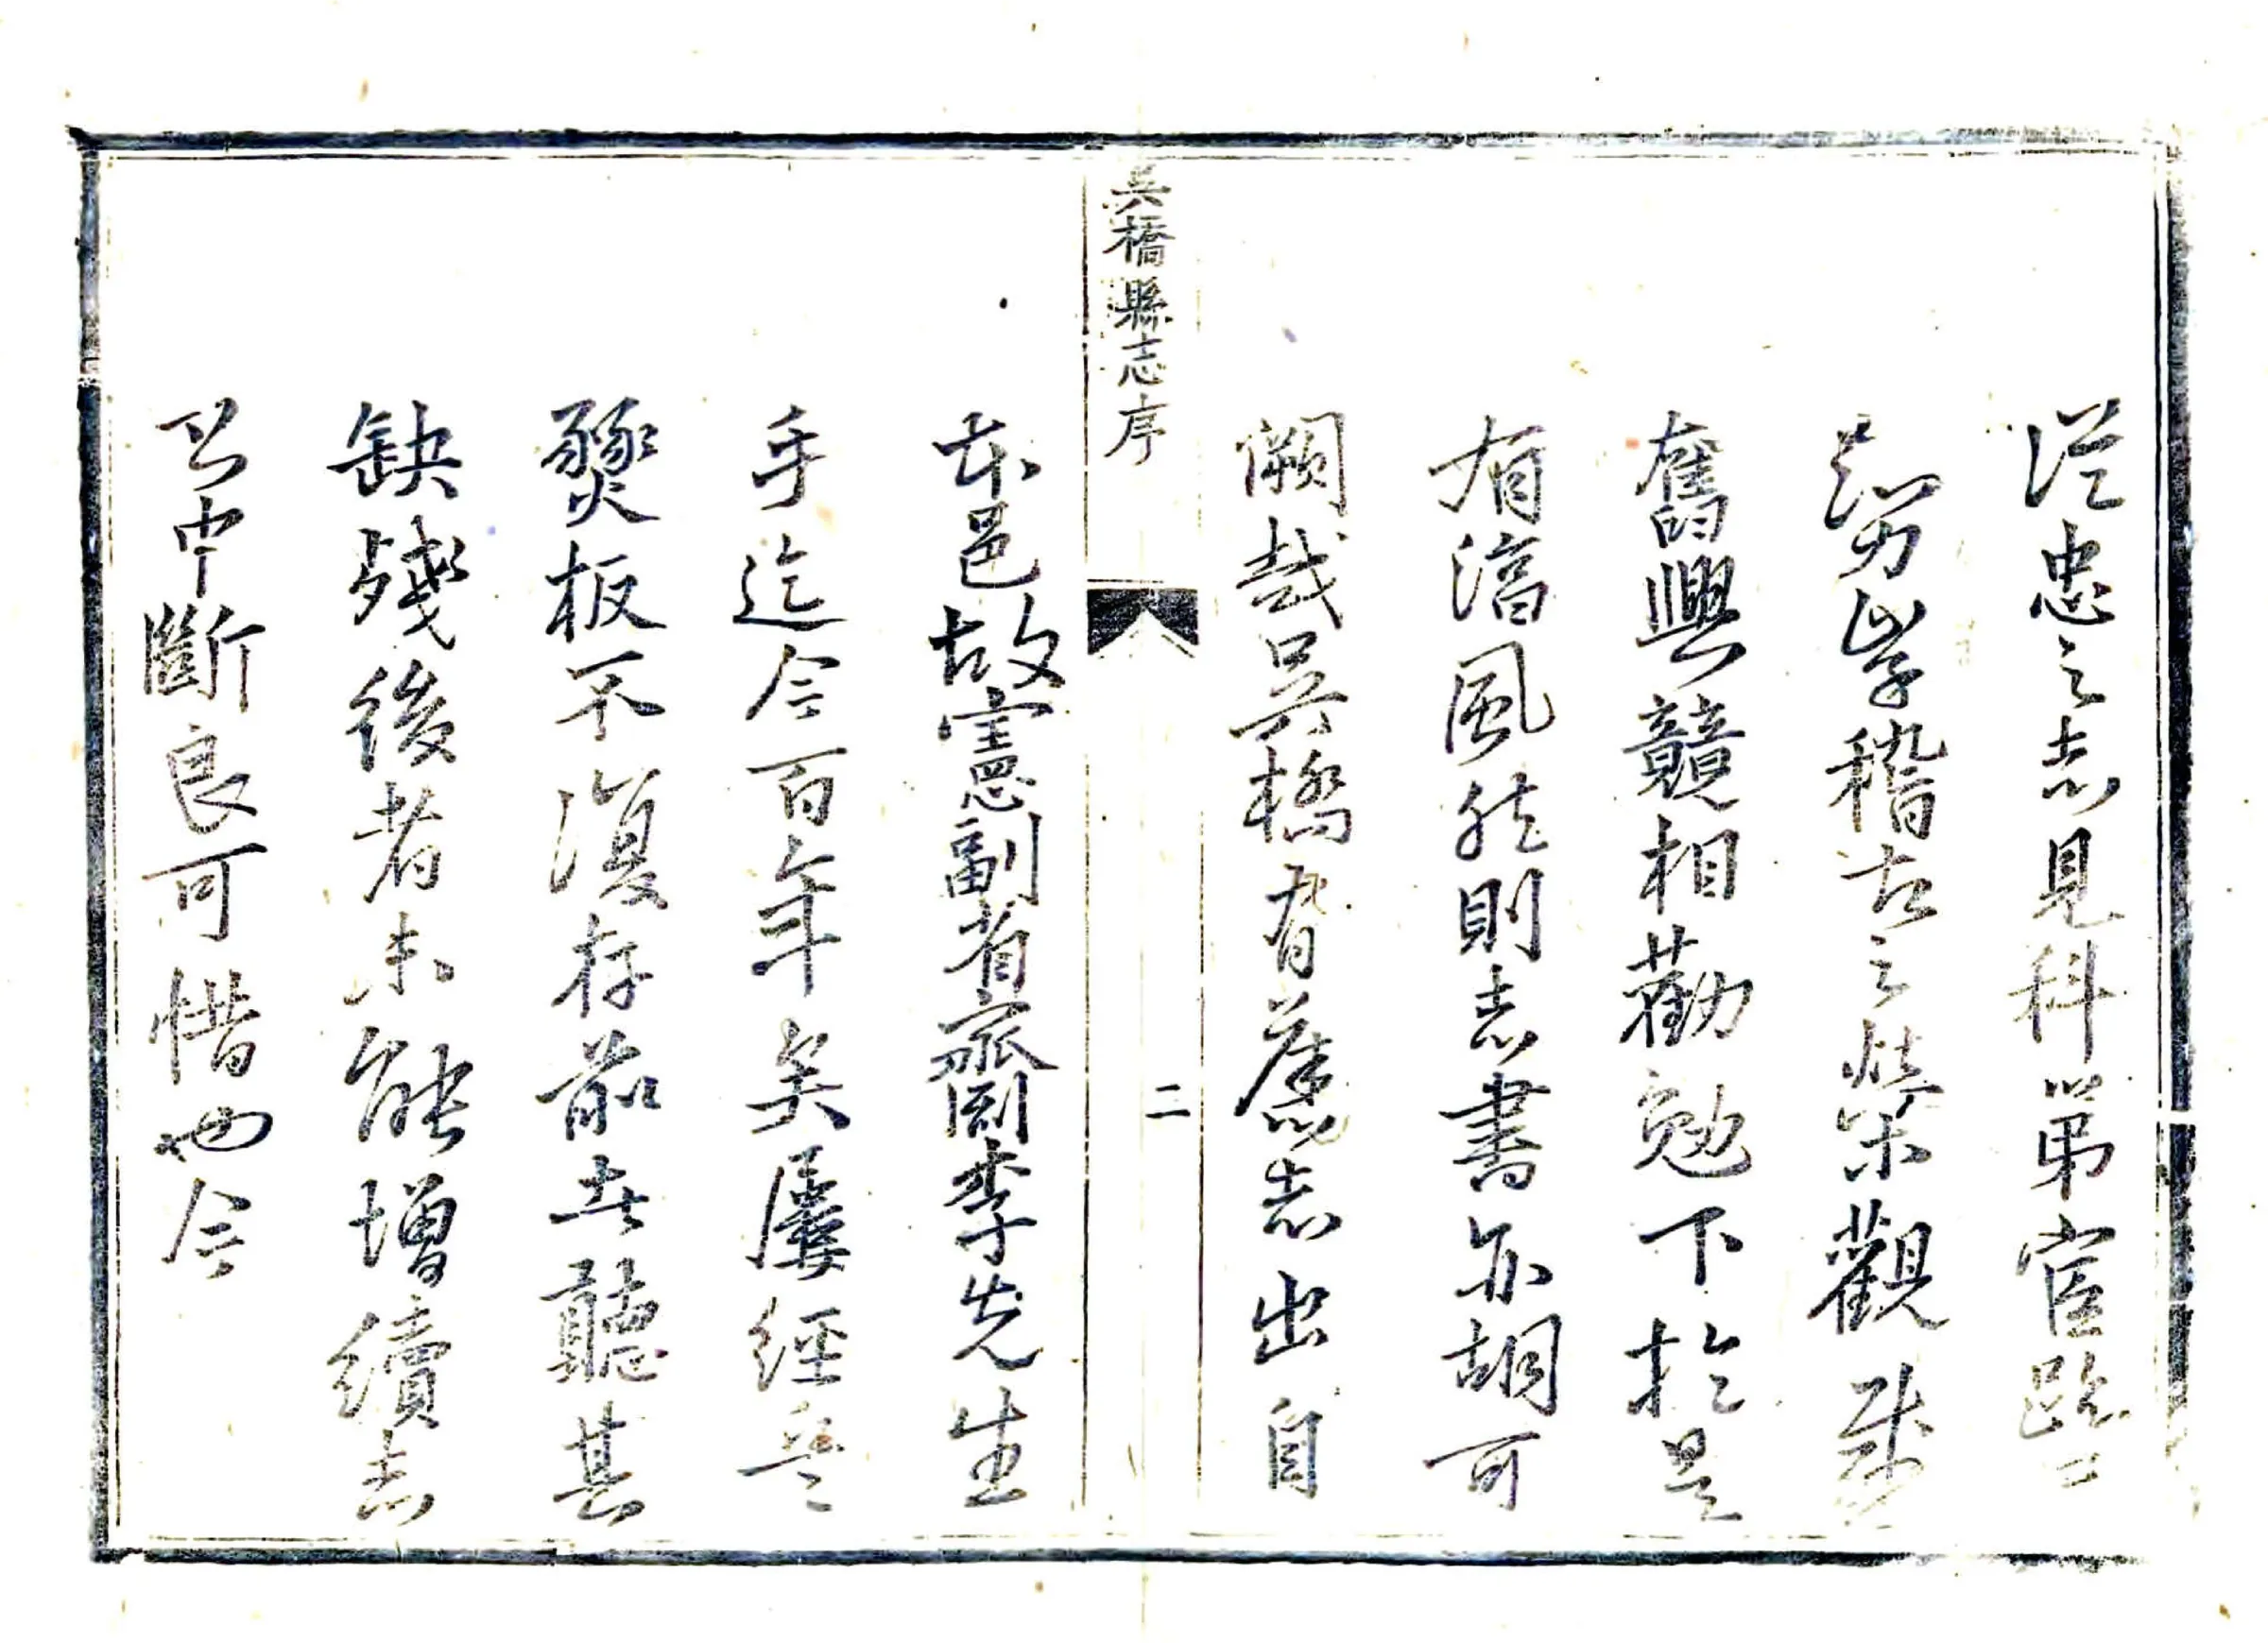 從忠之志見科第宦蹟
學稽古之榮觀感
奮興競相勸勉下於是
有湻風然則志書亦胡可
闕哉吳橋有舊志出自
吳橋縣志序
二
本邑故憲副省齋李先生
手迄今百年矣屢經兵
燹板不復存前者聽其
缺殘後者未能增續志
以中斷良可惜也今